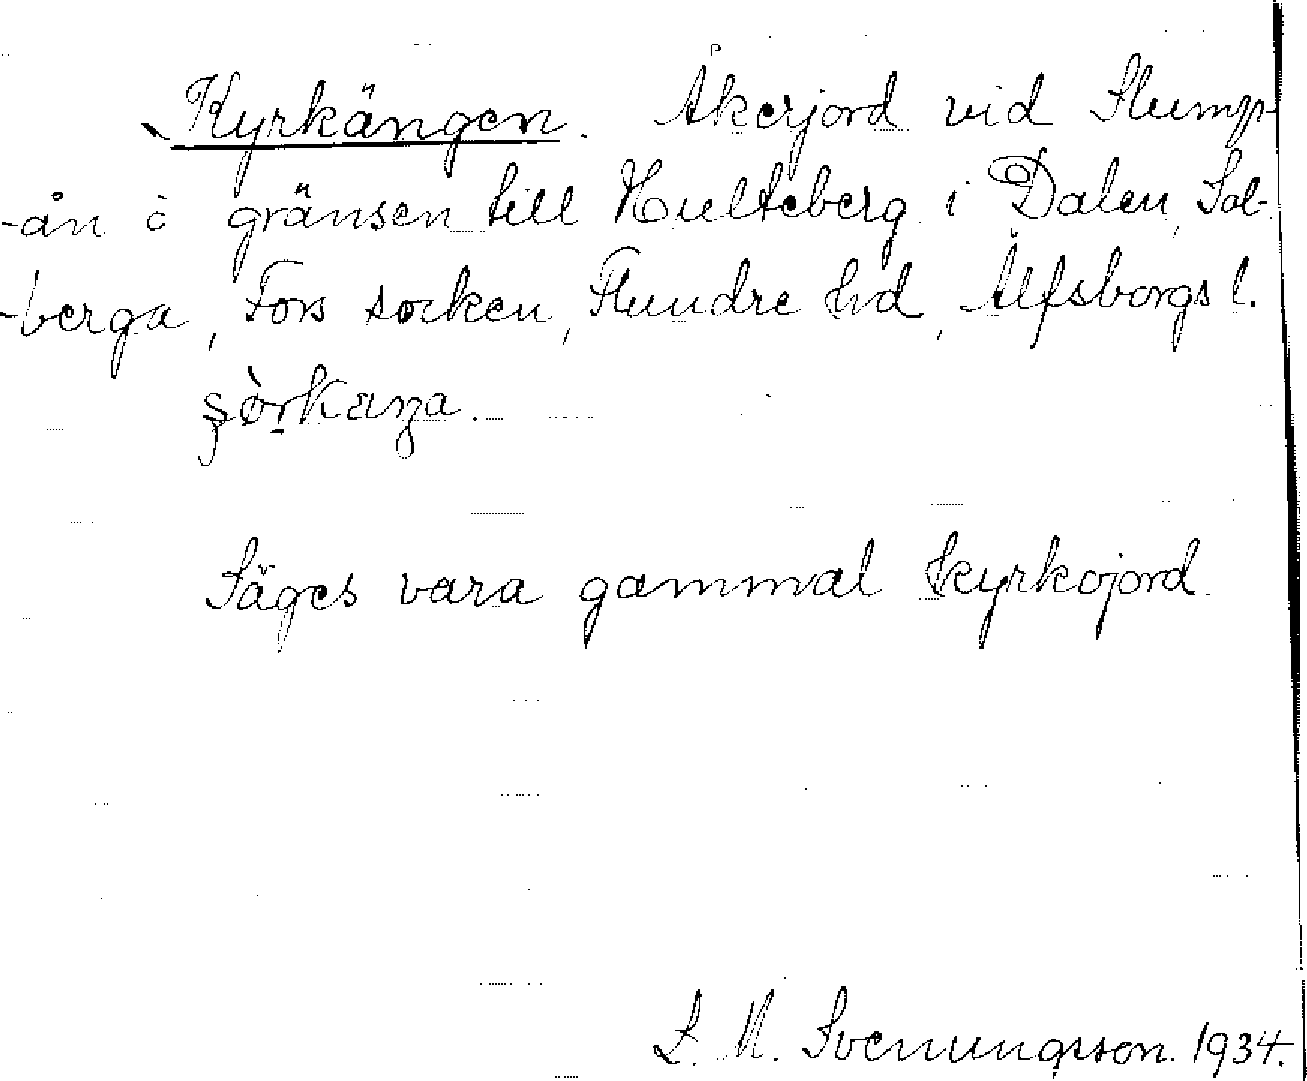 Kyrkängen. Åkerjord vid Slump-
-ån å gränsen till Hulteberg i Dalen, Sol-
-berga, Fors socken, Flundre hd, Älfsborgs l.
Säges vara gammal kyrkojord
L. M. Svenungsson. 1934.